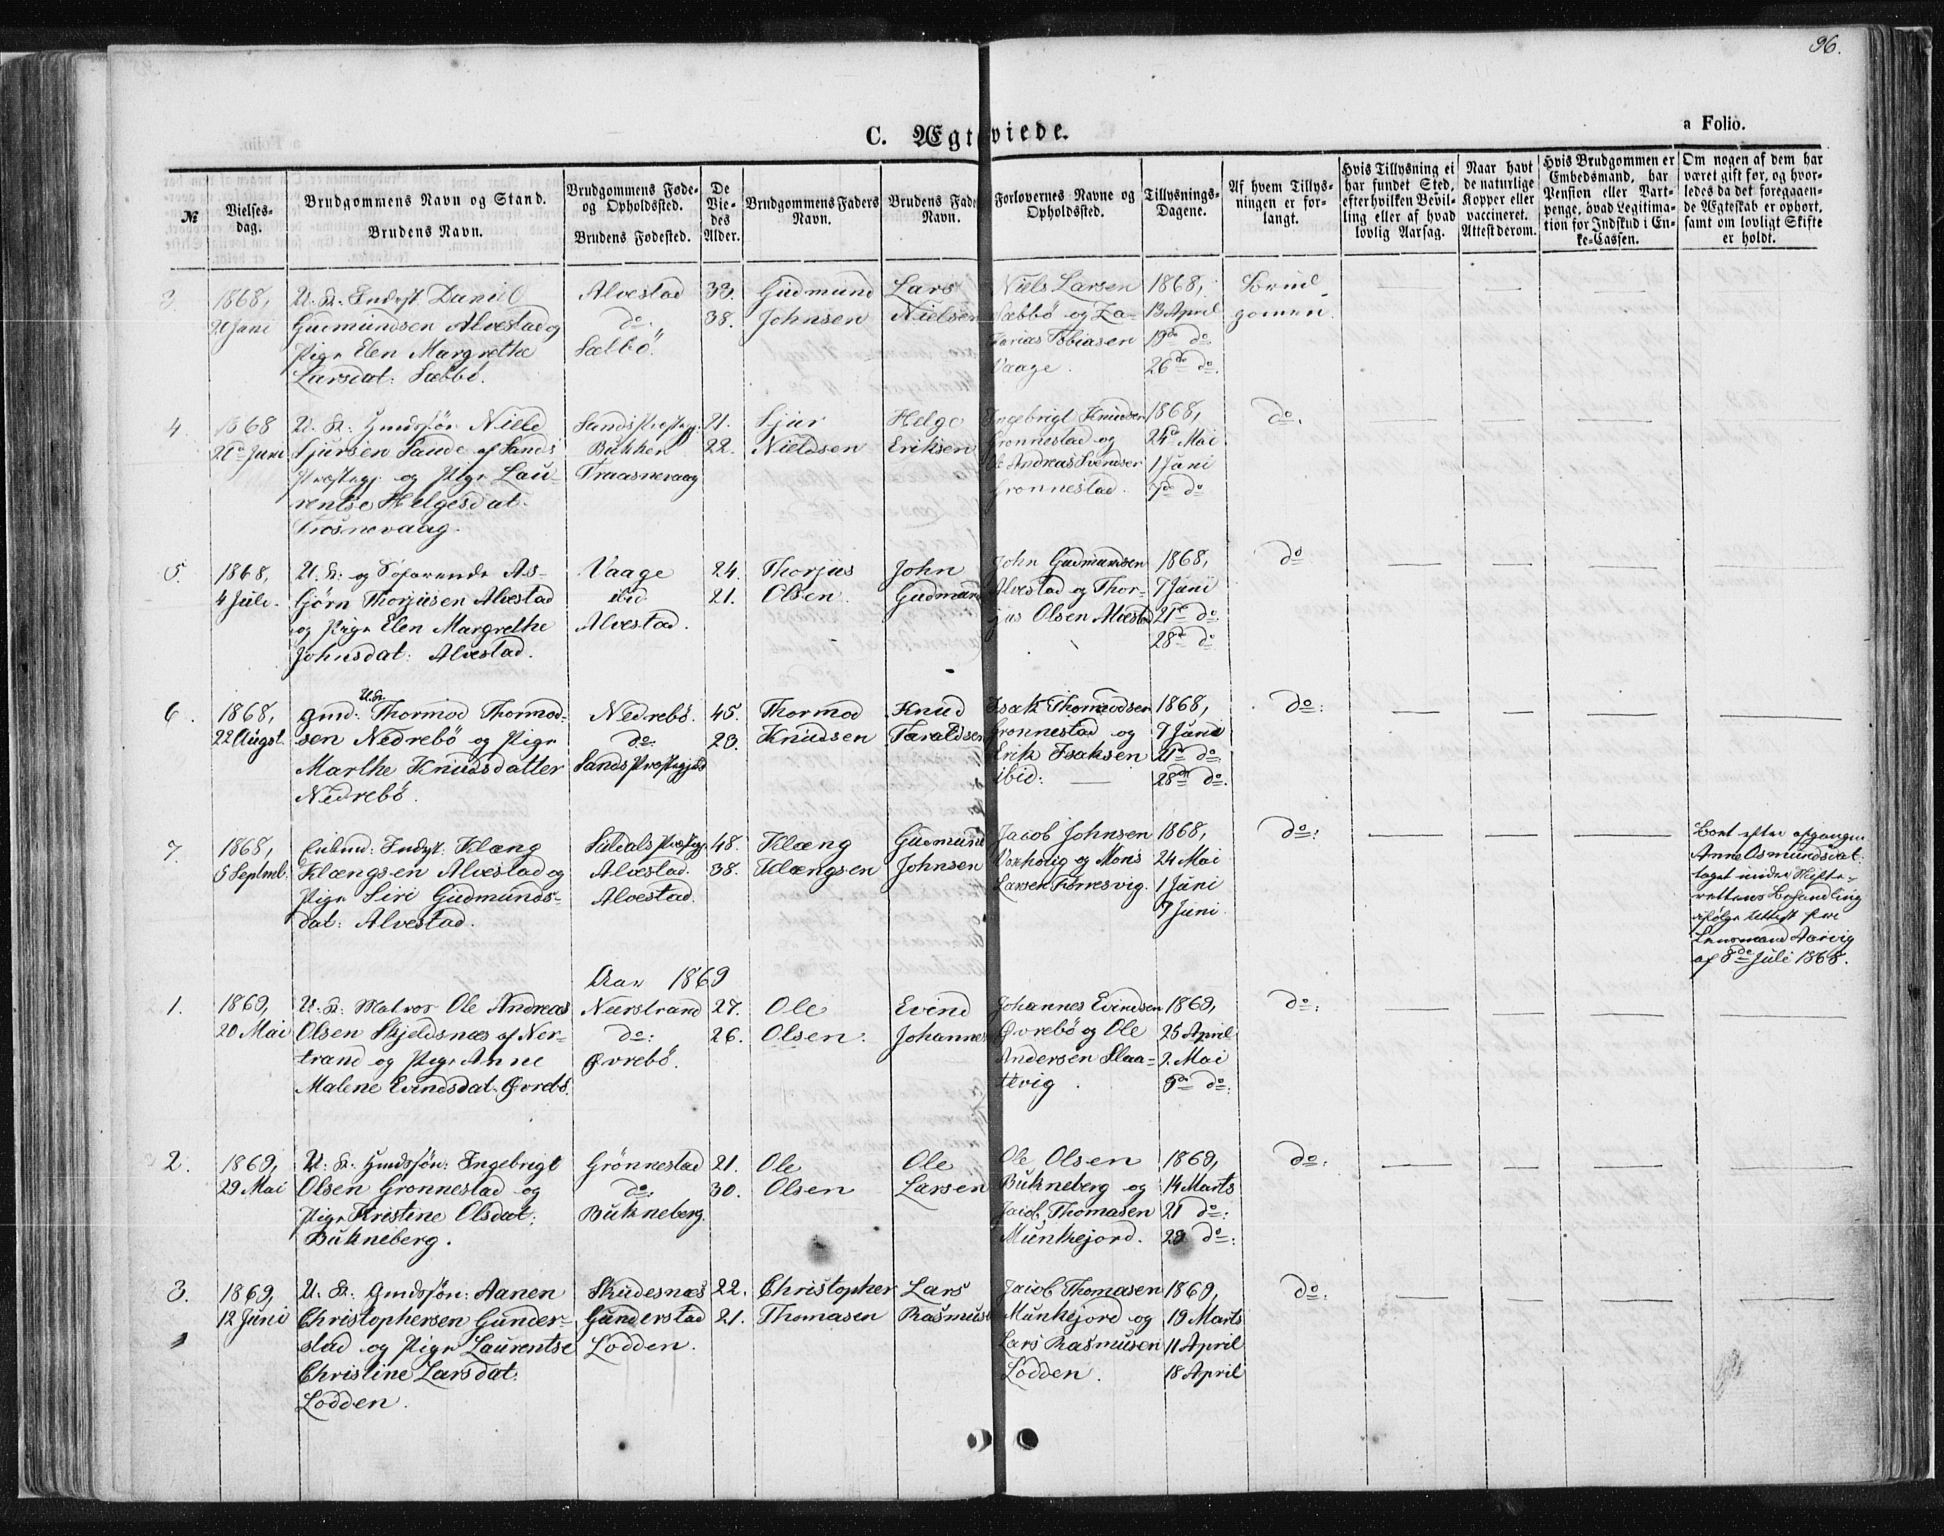 96.
C. Ægteviede.
a Folio.
№
Vielses-
dag.
Brudgommens Navn og Stand.
Brudens Navn.
Brudgommens Føde-
og Opholdssted.
Brudens Fødested.
De
Vie-
des
Alder.
Brudgommens Faders
Navn.
Brudens Fad
Navn.
Forlovernes Navne og
Opholdssted.
Tillysnings-
Dagene.
Af hvem Tillys-
ningen er for-
langt.
Hvis Tillysning ei
har fundet Sted,
efterhvilken Bevil-
ling eller af hvad
lovlig Aarsag.
Naar havt
de naturlige
Kopper eller
vaccineret.
Attest derom.
Hvis Brudgommen er
Embedsmand, har
Pension eller Vart-
penge, hvad Legitima-
tion for Indskud i En-
ke-Cassen.
Om nogen af dem har
været gift før, og hvor-
ledes da det foregaaen-
de Ægteskab er ophørt,
samt om lovligt Skifte
er holdt.
3.
1868,
21 Juni
U. K. Indyst Daniel
Gudmundsen Alvestad og
Pige Elen Margrethe
Larsdat: Sæbbö.
Alvestad
do.
Sælbö.
33.
38.
Gudmund
Johnsen
Lars
Nielsen
Niels Larsen
Sæbbö og Za-
karias Tobiasen
Vaage.
1868,
13 April
19de do.
26de do.
Brud-
gomen.
4.
1868
21de Juni
U. K: Gmdssön Niels
Sjursen Sande af Sands
Præstegj. og Pige Lau-
rentse Helgesdat.
Trosnevaag.
Sands Præstegj.
Bukken
Traasnevaag
21.
22.
Sjur
Nieldsen
Helge
Eriksen
Ingebrigt Knudsen
Gronnestad og
Ole Andreas Svendsen
Gronnestad.
1868,
24de Mai
1 Juni
7de do
do.
5.
1868,
4 Juli.
U. K: og Söfarende As-
björn Thorjusen Alvestad
og Pige Elen Margrethe
Johnsdat: Alvestad.
Vaage
ibid
Alvestad.
24.
21.
Thorjus
Olsen.
John
Gudmund
John Gudmundsen
Alvestad og Thor-
jus Olsen Alvestad
1868,
7 Juni
21de do.
28de do
do
6.
1868,
22 Augst.
U.K.
Gmd: Thormod Thormod-
sen Nedrebö og Pige
Marthe Knudsdatter
Nedrebö.
Nedrebö.
do.
Sands Præstegjeld
45.
23.
Thormod
Knudsen
Knud
Taraldsen
Isak Thormodsen
Gronnestad og
Erik Isaksen
ibid:
1868,
7 Juni
21de do.
28de do.
do:
7.
1868,
5 Septmb.
Enkmd: Indyst: Klæng
Klængsen Alvestad og
Pige Siri Gudmunds-
dat: Alvestad.
Suldals Præstgj.
Alvestad.
Alvestad.
48.
38.
Klæng
Klængsen
Gudmund
Johnsen
Jacob Johnsen
Voxhoug og Mons
Larsen Torresvig.
1868,
24 Mai
1 Juni
7 Juni.
do:
Boet efter afgangne
Anne Osmundsdat.
taget under Skifte-
rettens Behandling
ifölge Attest fra
Lensmand Aarvig
af 8de Juli 1868.
Aar 1869
1.
1869,
20 Mai
U. K: Matros Ole Andreas
Olsen Skjeldsnæs af Ner-
trand og Pige Anne
Malene Evindsdat. Øvrebö.
Neerstrand
do:
Øvrebö.
27.
26.
Ole
Olsen.
Evind
Johannes
Johannes Evindsen
Øvrebö og Ole
Andersen Slaa-
tevig.
1869,
25 April
2 Mai
9de do:
do:
2.
1869,
29 Mai
U: K. Gmdssön: Ingebrigt
Olsen Gronnestad og
Pige Kristine Olsdat:
Bukneberg.
Grönnestad
do:
Bukneberg.
21.
30.
Ole
Olsen
Ole
Larsen
Ole Olsen
Bukneberg og
Jacob Thomasen
Munkejord.
1869,
14 Marts
21 do:
29 do:
do:
3.
1869,
12 Juni
U. K: Gmdssön: Aanen
Christophersen Gunder-
stad og Pige Laurentse
Christine Larsdat:
Lodden.
Skudesnæs
Gunderstad
Lodden.
22.
21.
Christopher
Thomasen
Lars
Rasmus
Jacob Thomasen
Munkejord og
Lars Rasmusen
Lodden.
1869,
19 Marts
11 April
18 April
do: